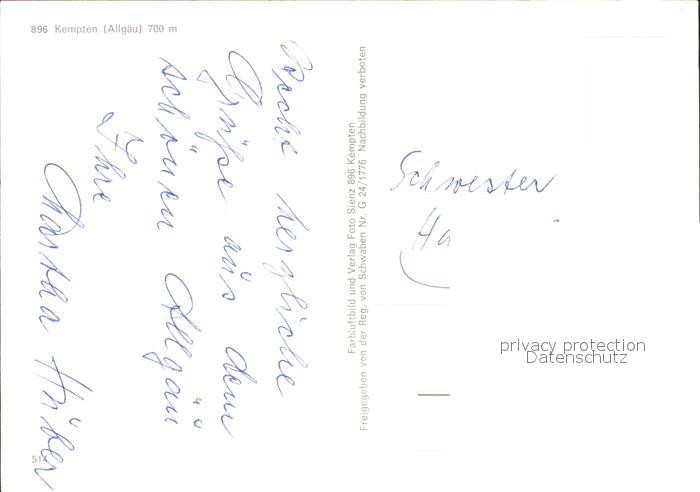 896 Kempten (Allgäu) 700 m
Recht herzliche
Grüße aus dem
schönen Allgäu
Ihre
Martha Huber
514
Farbluftbild und Verlag Foto Sienz 896 Kempten
Freigegeben von der Reg. von Schwaben Nr. G 24/1776 Nachbildung verboten
Schwester
Ha
privacy protection
Datenschutz